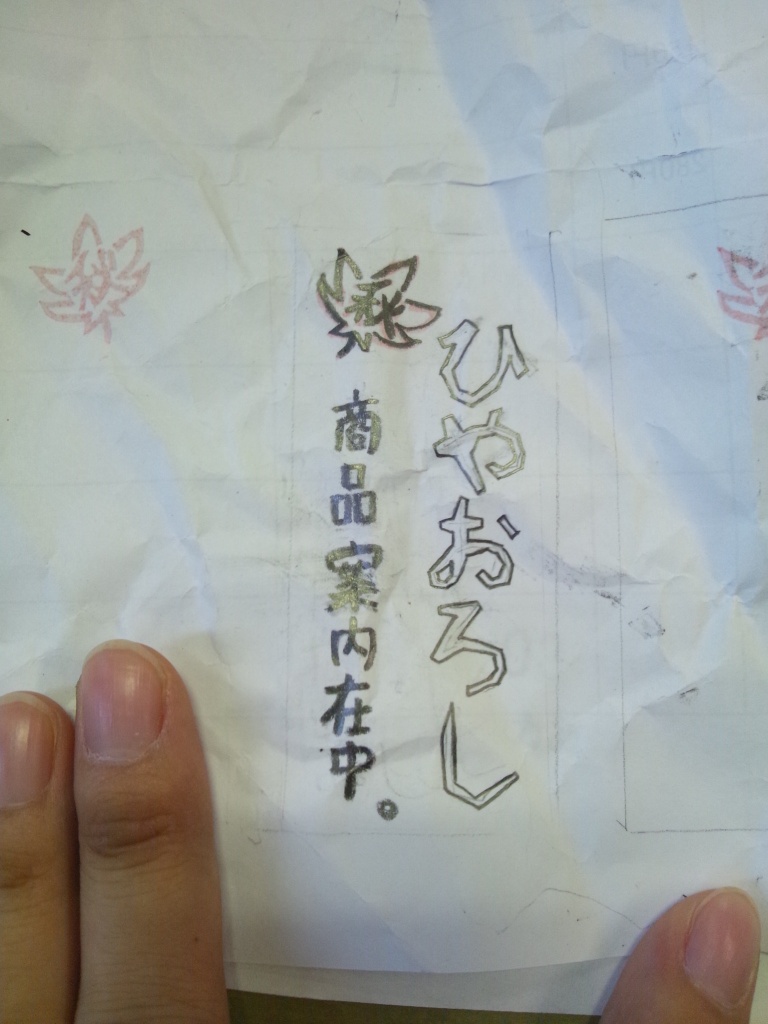 ひやおろし
秋
商品案内在中。
秋